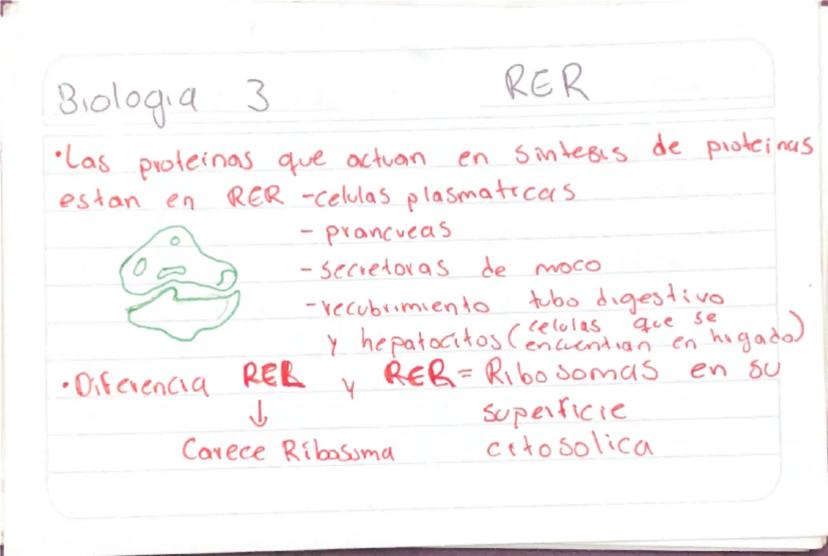 Biologia 3 RER
•Las proteinas que actuan en sintesis de proteinas
estan en RER -celulas plasmaticas
- prancueas
- secretoras de moco
-recubrimiento tubo digestivo
y hepatocitos (celulas que se
encuentran en higado)
•Diferencia RER y RER = Ribosomas en su
↓ superficie
Carece Ribosoma citosolica